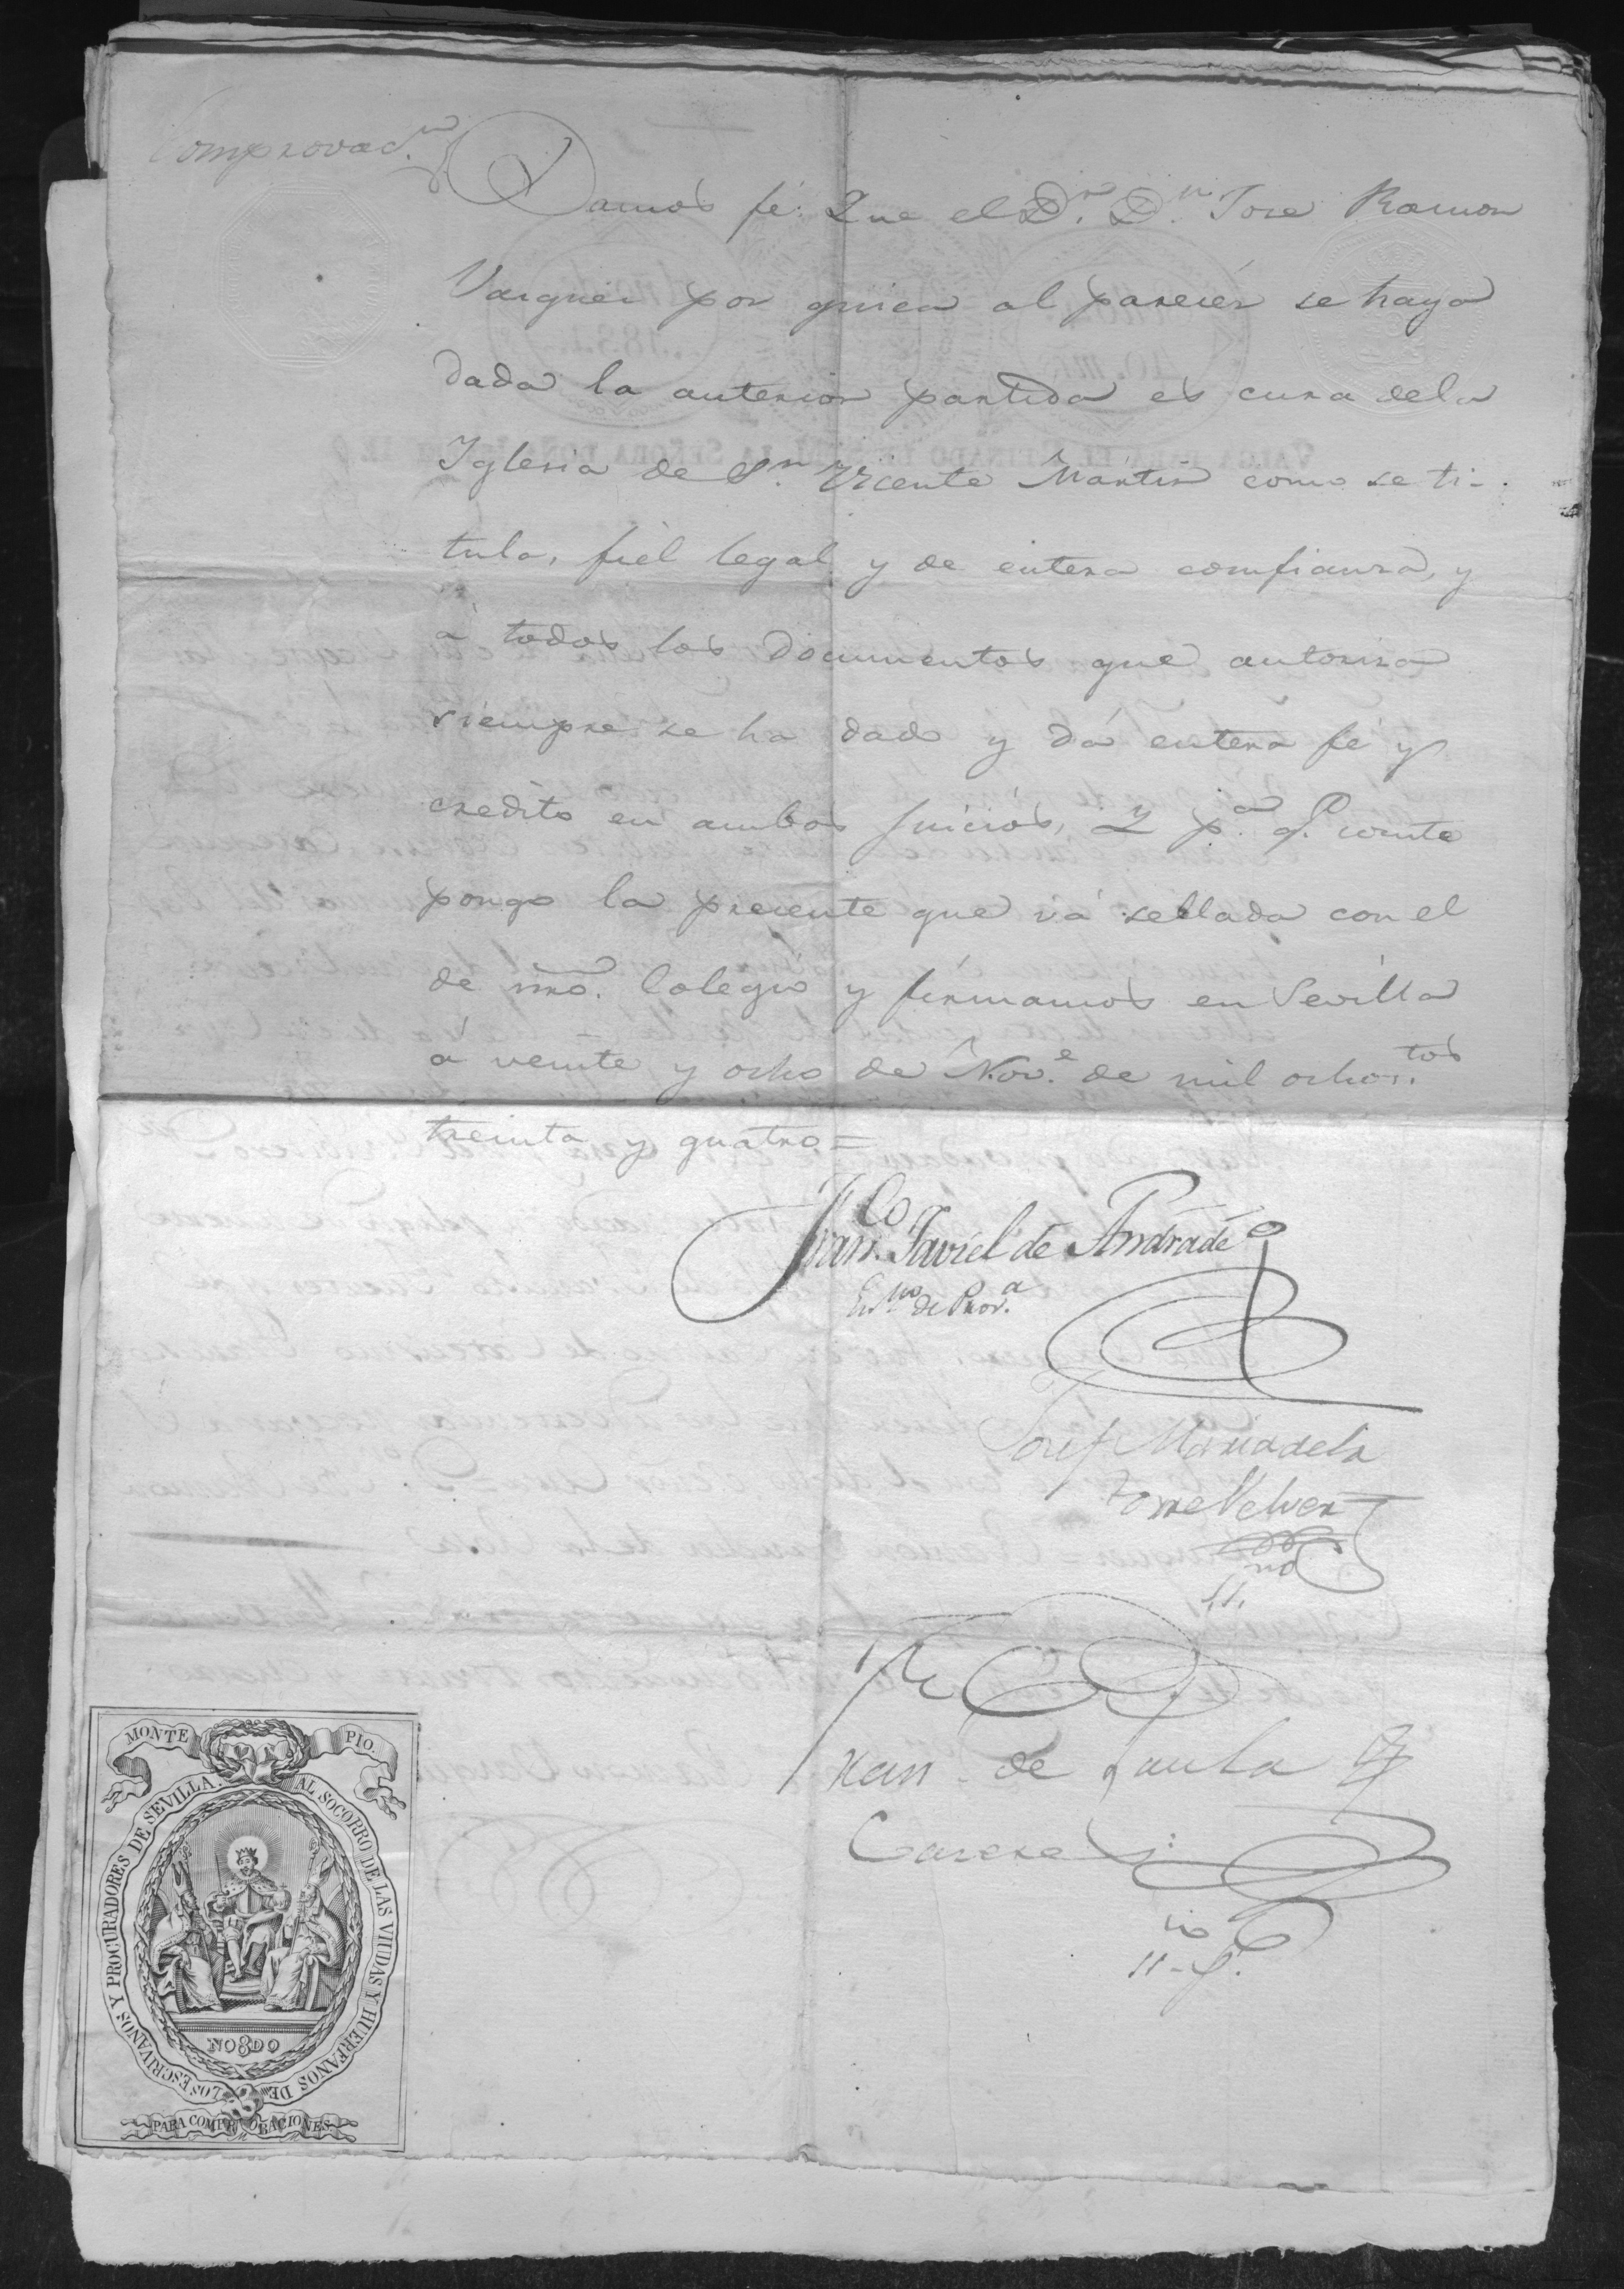 Comprovacn.
Damos fé: Que el Dr. Dn. Jose Ramon
Varguer por quien al parecér se haya
dada la anterior partida es cura dela
Iglesia de Sn. Vicente Mártir como se ti-
tula, fiél legal y de entera comfianza, y
á todos los documentos que autoriza
siempre se ha dado y dá entera fé y
credito en ambos juicios, Y pa. qe. conste
pongo la precente que vá sellada con el
de nro. Colégio y firmamos en Sevilla
á veinte y ocho de Nove. de mil ochos.tos
treinta y quatro=
Franco. Javiel de Andrade
Esno. de Prova.
Josef Maria dela
Torre
Fran de Paula
MONTE PIO.
LOS ESCRIVANOS Y PROCURADORES DE SEVILLA. AL SOCORRO DE LAS VIUDAS Y HUERFANOS DE
NO8DO
PARA COMPROBACIONES.